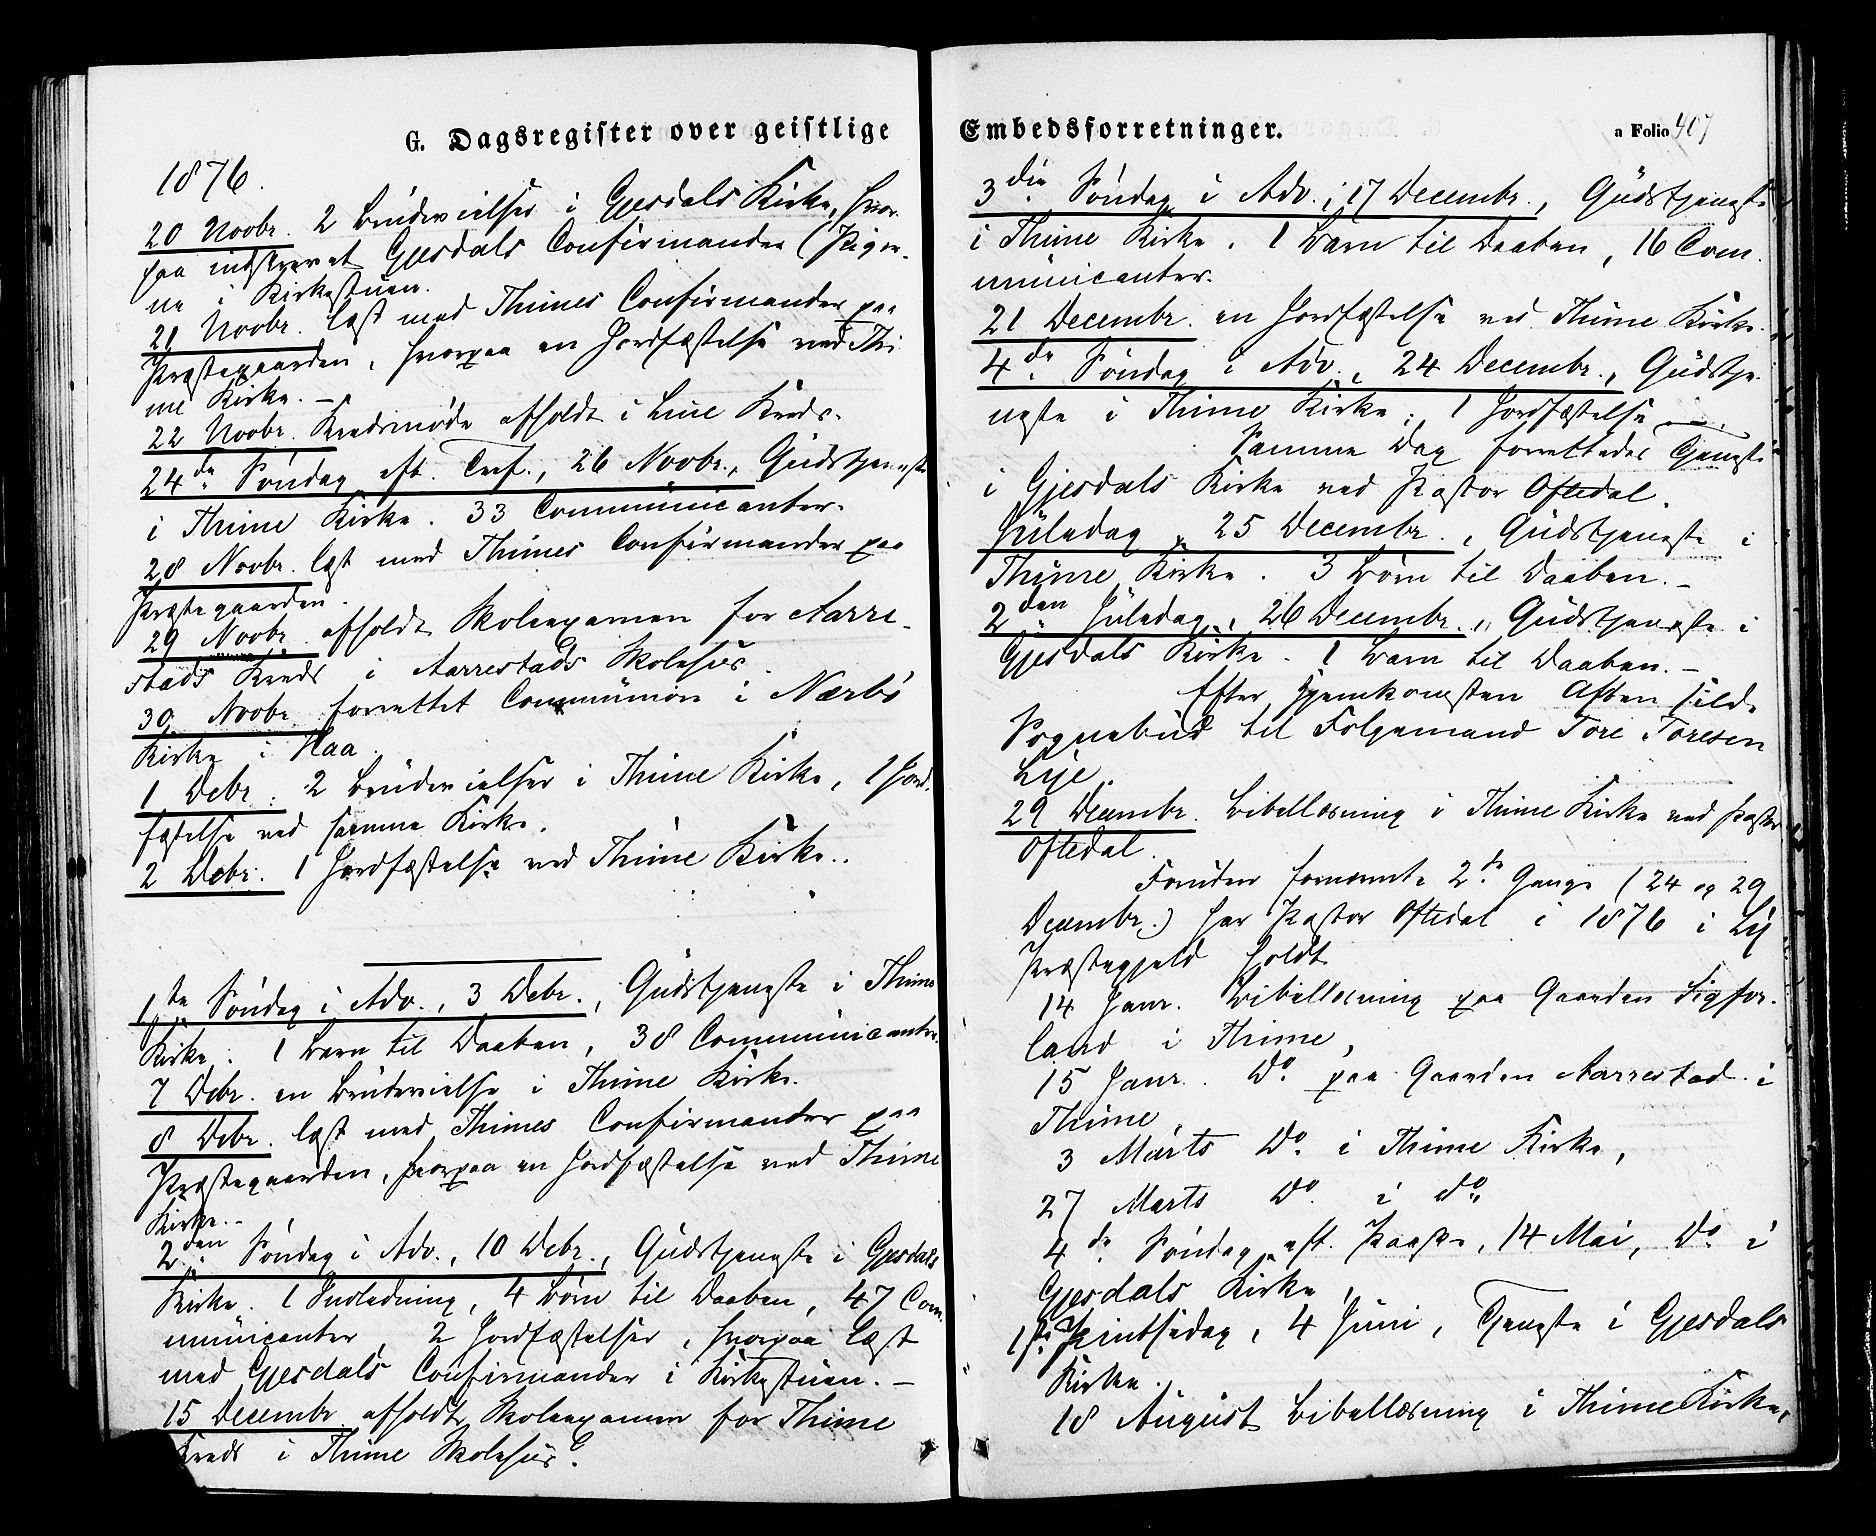 G. Dagsregister over geistlige
1876.
20 Novbr. 2 Brudevielser i Gjesdals Kirke, hvor-
paa indskrevet Gjesdals Confirmander (Piger-
ne i Kirkestuen.
21 Novbr. læst med Thimes Confirmander paa
Præstegaarden, hvorpaa en Jordfæstelse ved Thi
me Kirke. –
22 Novbr. Kredsmøde afholdt i Line Kreds.
24de Søndag eft. Tref., 26 Novbr., Gudstjeneste
i Thime Kirke. 33 Communicanter.
28 Novbr. læst med Thimes Confirmander paa
Præstegaarden.
29 Novbr. afholdt Skoleexamen for Aarre-
stads Kreds i Aarrestads Skolehus.
30 Novbr. forrettet Communion i Nærbø
Kirke i Haa.
1 Debr. 2 Brudevielser i Thime Kirke, 1 Jord-
fæstelse ved samme Kirke.
2 Debr. 1 Jordfæstelse ved Thime Kirke..
1ste Søndag i Adv., 3 Debr., Gudstjeneste i Thime
Kirke. 1 Barn til Daaben, 38 Communicanter.
7 Debr. en Brudevielse i Thime Kirke.
8 Debr. læst med Thimes Confirmander paa
Præstegaarden, hvorpaa en Jordfæstelse ved Thime
Kirke. –
2den Søndag i Adv., 10 Debr., Gudstjeneste i Gjesdals
Kirke. 1 Indledning, 4 Børn til Daaben, 47 Com-
municanter, 2 Jordfæstelser, hvorpaa læst
med Gjesdals Confirmander i Kirkestuen. –
15 Decembr. afholdt Skoleexamen for Thime
Kreds i Thime Skolehus.
Embedsforretninger.
a Folio 407
3die Søndag i Adv., 17 Decembr., Gudstjeneste
i Thime Kirke. 1 Barn til Daaben, 16 Com-
municanter.
21 Decembr. en Jordfæstelse ved Thime Kirke.
4de Søndag i Adv., 24 Decembr., Gudstje-
neste i Thime Kirke. 1 Jordfæstelse
Samme Dag forrettedes Tjeneste
i Gjesdals Kirke ved Pastor Oftedal.
Juledag, 25 Decembr., Gudstjeneste i
Thime Kirke. 3 Børn til Daaben. –
2den Juledag, 26 Decembr., Gudstjeneste i
Gjesdals Kirke. 1 Barn til Daaben. –
Efter Hjemkomsten Aften silde
Sognebud til Folgemand Tore Toresen
Lye.
29 Decembr. Bibellæsning i Thime Kirke ved Pastor
Oftedal.
Foruden fornævnte 2de Gange (24 og 29
Decembr.) har Pastor Oftedal i 1876 i Ly
Præstegjeld holdt
14 Janr. Bibellæsning paa Gaarden Sigfor-
land i Thime,
15 Janr. Do. paa Gaarden Aarrestad i
Thime
3 Marts Do. i Thime Kirke,
27 Marts Do. i do.
4de Søndag eft. Paaske, 14 Mai, Do. i
Gjesdals Kirke,
1ste Pintsedag, 4 Juni, Tjeneste i Gjesdals
Kirke.
18 August Bibellæsning i Thime Kirke,